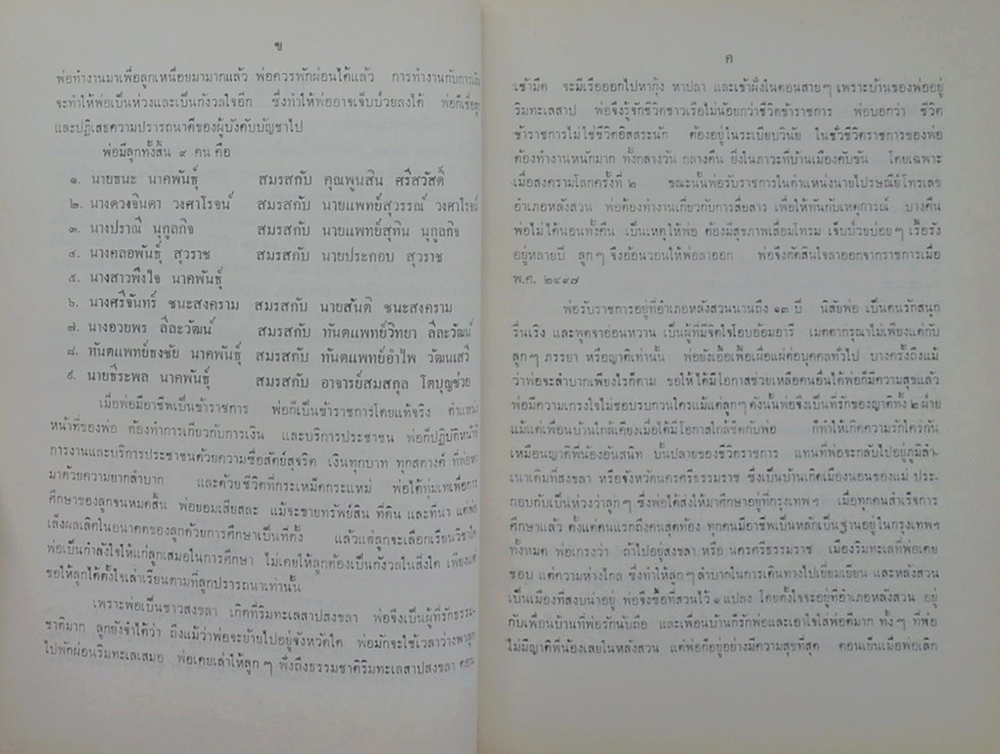 ข
พ่อทำงานมาเพื่อลูกเหนื่อยมามากแล้ว พ่อควรพักผ่อนได้แล้ว การทำงานกับการเงิน
จะทำให้พ่อเป็นห่วงและเป็นกังวลใจอีก ซึ่งทำให้พ่ออาจเจ็บป่วยลงได้ พ่อก็เชื่อลูก
และปฏิเสธความปรารถนาดีของผู้บังคับบัญชาไป
พ่อมีลูกทั้งสิ้น ๙ คน คือ
๑. นายธนะ นาคพันธุ์ สมรสกับ คุณพูนสิน ศรีสวัสดิ์
๒. นางดวงจินดา วงศาโรจน์ สมรสกับ นายแพทย์สุวรรณ์ วงศาโรจน์
๓. นางปราณี นุกูลกิจ สมรสกับ นายแพทย์สุทิน นุกูลกิจ
๔. นางคลอพันธุ์ สุวราช สมรสกับ นายประกอบ สุวราช
๕. นางสาวพึงใจ นาคพันธุ์
๖. นางศรีจันทร์ ชนะสงคราม สมรสกับ นายสันติ ชนะสงคราม
๗. นางอวยพร ลีละวัฒน์ สมรสกับ ทันตแพทย์วิทยา ลีละวัฒน์
๘. ทันตแพทย์ธงชัย นาคพันธุ์ สมรสกับ ทันตแพทย์อำไพ วัฒนเสวี
๙. นายธีระพล นาคพันธุ์ สมรสกับ อาจารย์สมสกุล โตบุญช่วย
เมื่อพ่อมีอาชีพเป็นข้าราชการ พ่อก็เป็นข้าราชการโดยแท้จริง ตำแหน่ง
หน้าที่ของพ่อ ต้องทำการเกี่ยวกับการเงิน และบริการประชาชน พ่อก็ปฏิบัติหน้าที่
การงานและบริการประชาชนด้วยความซื่อสัตย์สุจริต เงินทุกบาท ทุกสตางค์ ที่พ่อหา
มาด้วยความยากลำบาก และด้วยชีวิตที่กระเหม็ดกระแหม่ พ่อได้ทุ่มเทเพื่อการ
ศึกษาของลูกจนหมดสิ้น พ่อยอมเสียสละ แม้จะขายทรัพย์สิน ที่ดิน และที่นา แต่พ่อ
เล็งผลเลิศในอนาคตของลูกด้วยการศึกษาเป็นที่ตั้ง แล้วแต่ลูกจะเลือกเรียนวิชาใด
พ่อเป็นกำลังใจให้แก่ลูกเสมอในการศึกษา ไม่เคยให้ลูกต้องเป็นกังวลในสิ่งใด เพียงแต่
ขอให้ลูกได้ตั้งใจเล่าเรียนตามที่ลูกปรารถนาเท่านั้น
เพราะพ่อเป็นชาวสงขลา เกิดที่ริมทะเลสาปสงขลา พ่อจึงเป็นผู้ที่รักธรรม-
ชาติมาก ลูกยังจำได้ว่า ถึงแม้ว่าพ่อจะย้ายไปอยู่จังหวัดใด พ่อมักจะใช้เวลาว่างพาลูก
ไปพักผ่อนริมทะเลเสมอ พ่อเคยเล่าให้ลูก ๆ ฟังถึงธรรมชาติริมทะเลสาปสงขลา ตอน
ค
เช้ามืด จะมีเรือออกไปหากุ้ง หาปลา และเข้าฝั่งในตอนสาย ๆ เพราะบ้านของพ่ออยู่
ริมทะเลสาป พ่อจึงรู้จักชีวิตชาวเรือไม่น้อยกว่าชีวิตข้าราชการ พ่อบอกว่า ชีวิต
ข้าราชการไม่ใช่ชีวิตอิสสระนัก ต้องอยู่ในระเบียบวินัย ในชั่วชีวิตราชการของพ่อ
ต้องทำงานหนักมาก ทั้งกลางวัน กลางคืน ยิ่งในภาวะที่บ้านเมืองคับขัน โดยเฉพาะ
เมื่อสงครามโลกครั้งที่ ๒ ขณะนั้นพ่อรับราชการในตำแหน่งนายไปรษณีย์โทรเลข
อำเภอหลังสวน พ่อต้องทำงานเกี่ยวกับการสื่อสาร เพื่อให้ทันกับเหตุการณ์ บางคืน
พ่อไม่ได้นอนทั้งคืน เป็นเหตุให้พ่อ ต้องมีสุขภาพเสื่อมโทรม เจ็บป่วยบ่อย ๆ เรื้อรัง
อยู่หลายปี ลูก ๆ จึงอ้อนวอนให้พ่อลาออก พ่อจึงตัดสินใจลาออกจากราชการเมื่อ
พ.ศ. ๒๔๙๗
พ่อรับราชการอยู่ที่อำเภอหลังสวนนานถึง ๑๓ ปี นิสัยพ่อ เป็นคนรักสนุก
รื่นเริง และพูดจาอ่อนหวาน เป็นผู้ที่มีจิตใจโอบอ้อมอารี เมตตากรุณาไม่เพียงแต่กับ
ลูก ๆ ภรรยา หรือญาติเท่านั้น พ่อยังเอื้อเฟื้อเผื่อแผ่ต่อบุคคลทั่วไป บางครั้งถึงแม้
ว่าพ่อจะลำบากเพียงไรก็ตาม ขอให้ได้มีโอกาสช่วยเหลือคนอื่นได้พ่อก็มีความสุขแล้ว
พ่อมีความเกรงใจไม่ชอบรบกวนใครแม้แต่ลูก ๆ ดังนั้นพ่อจึงเป็นที่รักของญาติทั้ง ๒ ฝ่าย
แม้แต่เพื่อนบ้านใกล้เคียงเมื่อได้มีโอกาสใกล้ชิดกับพ่อ ก็ทำให้เกิดความรักใคร่กัน
เหมือนญาติพี่น้องอันสนิท บั้นปลายของชีวิตราชการ แทนที่พ่อจะกลับไปอยู่ภูมิลำ-
เนาเดิมที่สงขลา หรือจังหวัดนครศรีธรรมราช ซึ่งเป็นบ้านเกิดเมืองนอนของแม่ ประ-
กอบกับเป็นห่วงว่าลูก ๆ ซึ่งพ่อได้ส่งให้มาศึกษาอยู่ที่กรุงเทพฯ เมื่อทุกคนสำเร็จการ
ศึกษาแล้ว ตั้งแต่คนแรกถึงคนสุดท้อง ทุกคนมีอาชีพเป็นหลักเป็นฐานอยู่ในกรุงเทพฯ
ทั้งหมด พ่อเกรงว่า ถ้าไปอยู่สงขลา หรือ นครศรีธรรมราช เมืองริมทะเลที่พ่อเคย
ชอบ แต่ความห่างไกล ซึ่งทำให้ลูก ๆ ลำบากในการเดินทางไปเยี่ยมเยียน และหลังสวน
เป็นเมืองที่สงบน่าอยู่ พ่อจึงซื้อที่สวนไว้ ๑ แปลง โดยตั้งใจจะอยู่ที่อำเภอหลังสวน อยู่
กับเพื่อนบ้านที่พ่อรักนับถือ และเพื่อนบ้านก็รักพ่อและเอาใจใส่พ่อดีมาก ทั้ง ๆ ที่พ่อ
ไม่มีญาติพี่น้องเลยในหลังสวน แต่พ่อก็อยู่อย่างมีความสุขที่สุด ตอนเย็นเมื่อพ่อเลิก